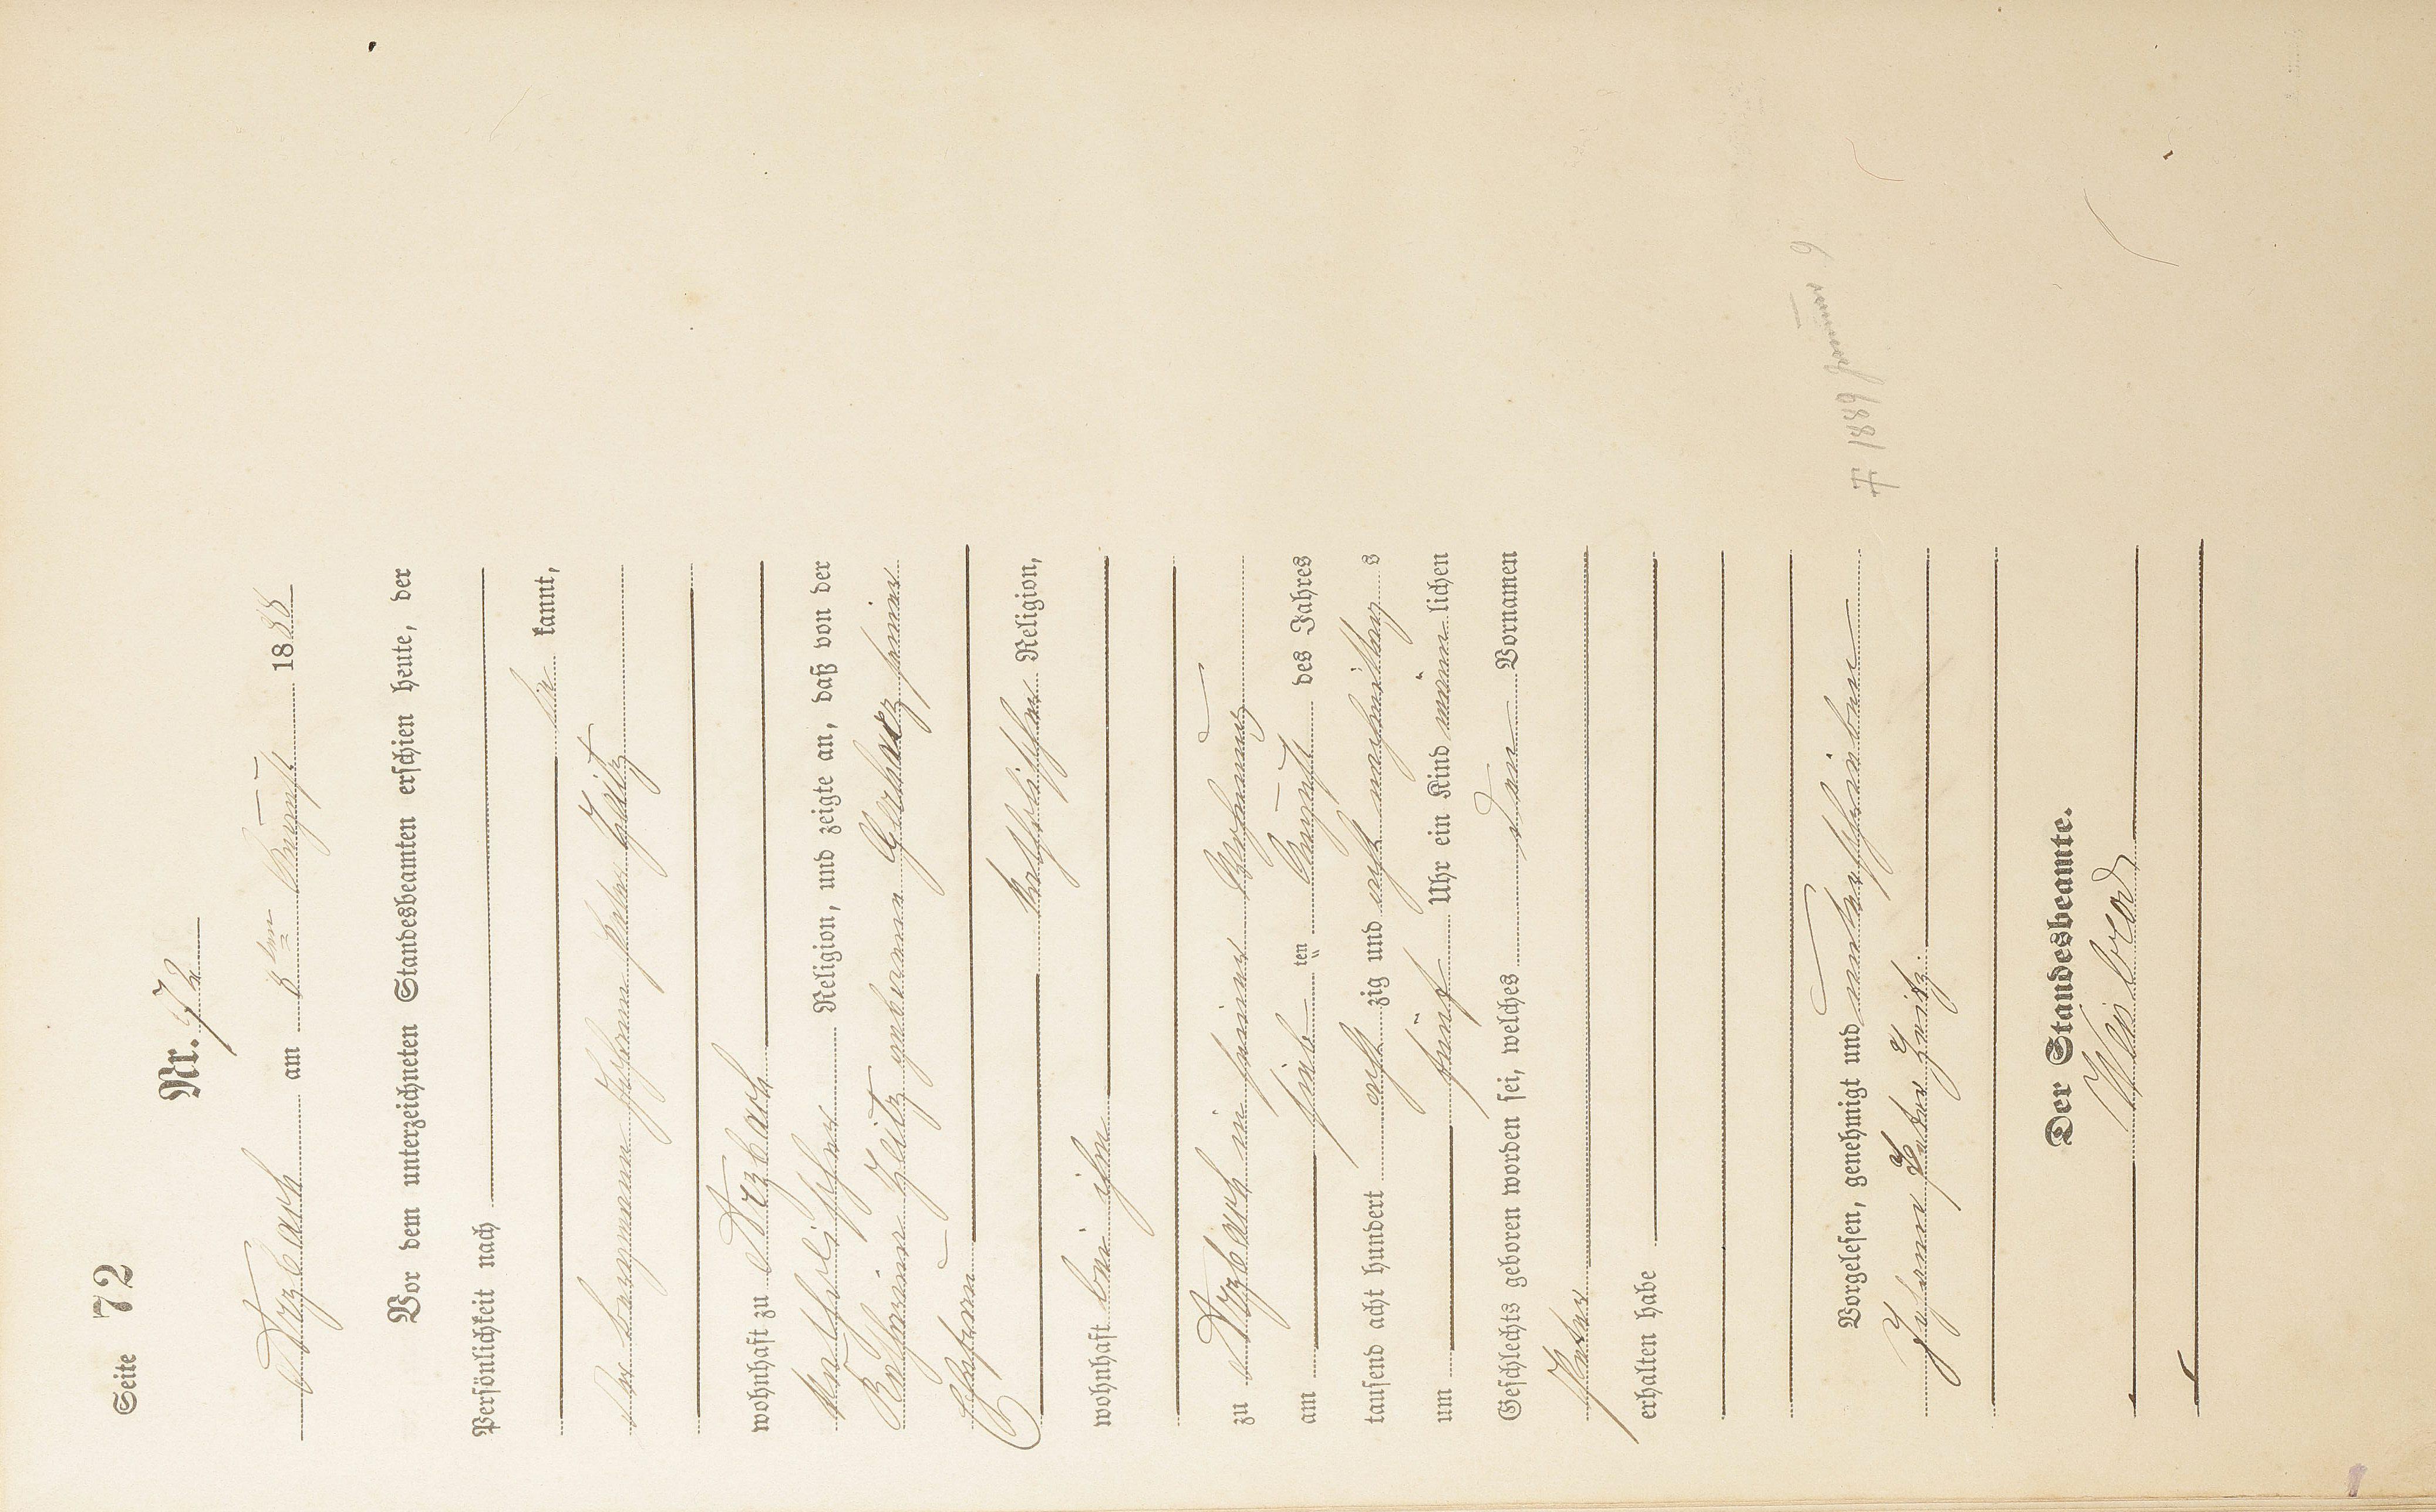 Seite 72
Nr. 72
Arzbach am 8ten August 1888
Vor dem unterzeichneten Standesbeamten erschien heute, der
Persönlichkeit nach
be kannt,
Der Bergmann Johann Peter Zeitz
wohnhaft zu Arzbach
katholischer Religion, und zeigte an, daß von der
Katharina Zeitz geborenen Gerharz seiner
Ehefrau
katholischer Religion,
wohnhaft bei ihm
zu Arzbach in seiner Wohnung
am sieb ten August des Jahres
tausend acht hundert acht zig und acht nachmittag s
um fünf Uhr ein Kind männ lichen
Geschlechts geboren worden sei, welches den Vornamen
Peter
erhalten habe
Vorgelesen, genehmigt und unterschrieben
† 1889 9
Johann Peter Zeitz.
Der Standesbeamte.